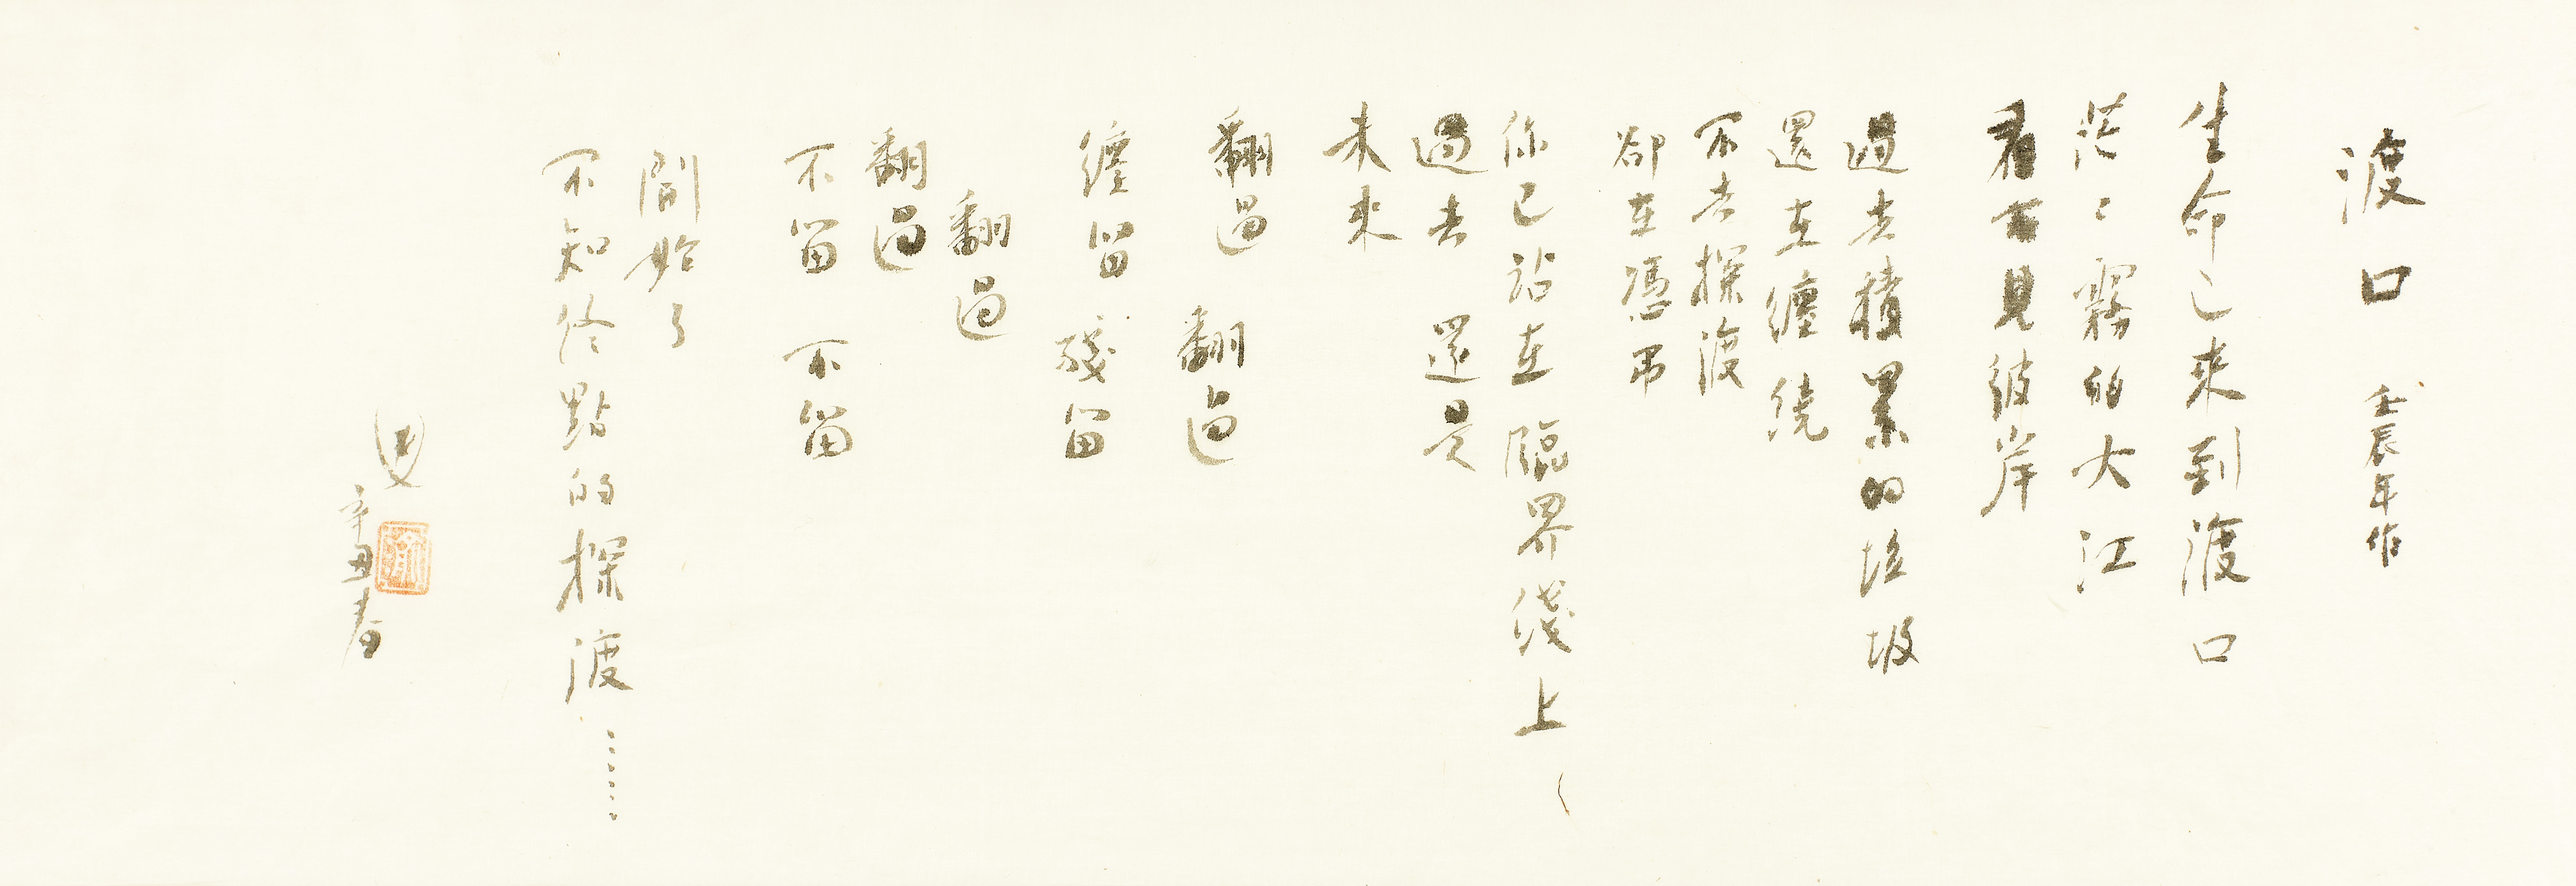 渡口 壬辰年作
生命已來到渡口
茫々霧的大江
看不見彼岸
過去積累的垃圾
還在纏繞
不去探渡
卻在憑弔
你已站在臨界綫上
過去 還是
未來
翻過 翻過
纏留 殘留
翻過
翻過
不留 不留
開始了
不知終點的探渡……
辛丑春